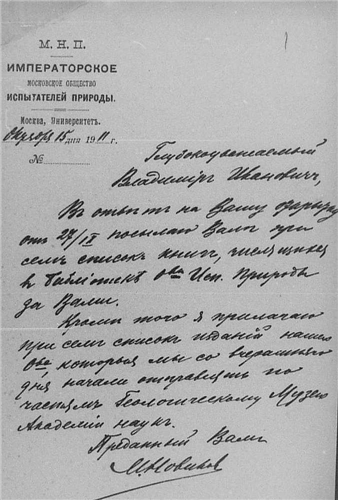 М. Н. П.
ИМПЕРАТОРСКОЕ
МОСКОВСКОЕ ОБЩЕСТВО
ИСПЫТАТЕЛЕЙ ПРИРОДЫ.
Москва, Университетъ.
Октября 15 дня 1911 г.
№
Глубокоуважаемый
Владимiръ Ивановичъ,
Въ отвѣтъ на Вашу
отъ 27/IX посылаю Вамъ при
семъ списокъ книгъ, числящихся
въ библiотекѣ О-ва Исп. Природы
за Вами.
Кромѣ того я прилагаю
при семъ списокъ изданiй нашего
О-ва которыя мы со вчерашняго
дня начали отправлять по
частямъ Геологическому Музею
Академiи наукъ.
Преданный Вамъ
М. Новиковъ